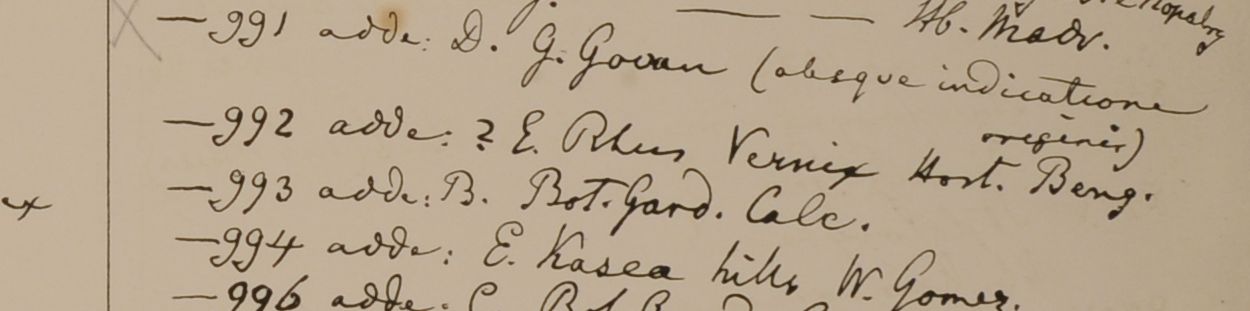 Hb. Madr.
—991 adde: D. G. Govan (absque indicatione
originis)
—992 adde: ? E. Rhus Vernix Hort. Beng.
—993 adde: B. Bot. Gard. Calc.
ex
—994 adde: E. Kasea hills W. Gomez.
—996 adde: